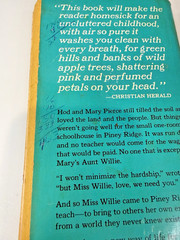 "This book will make the
reader homesick for an
uncluttered childhood,
with air so pure it
washes you clean with
every breath, for green
hills and banks of wild
apple trees, shattering
pink and perfumed
petals on your head."
—CHRISTIAN HERALD
Hod and Mary Pierce still tilled the soil a
loved the land and the people. But thing
weren't going well for the small one-room
schoolhouse in Piney Ridge. It was run d
and no teacher would come for the wage
that would be paid. No one that is excep
Mary's Aunt Willie.
"I won't minimize the hardship," wrot
"but Miss Willie, love, we need you."
And so Miss Willie came to Piney Rid
teach—to bring to others her own ex
from a world they never knew exist
way of life